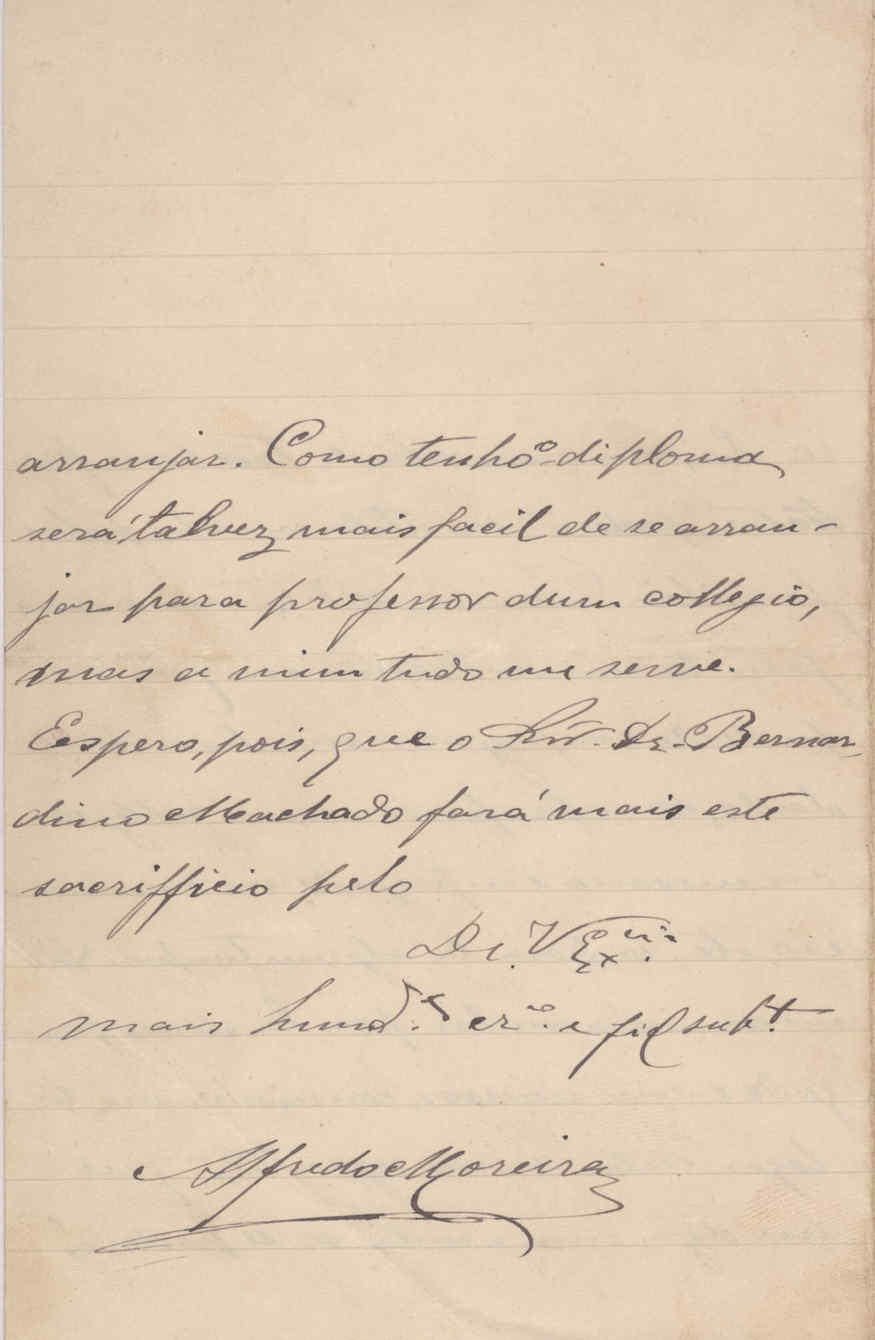 arranjar. Como tenho o diploma
será talvez mais facil de se arran-
jar para professor dum collegio,
mas a mim tudo me serve.
Espero, pois, que o Snr. Dr. Bernar-
dino Machado fará mais este
sacrifficio pelo
De. V. Ex.cia
mais humd.e cr.o e fiel subt.
Alfredo Moreira